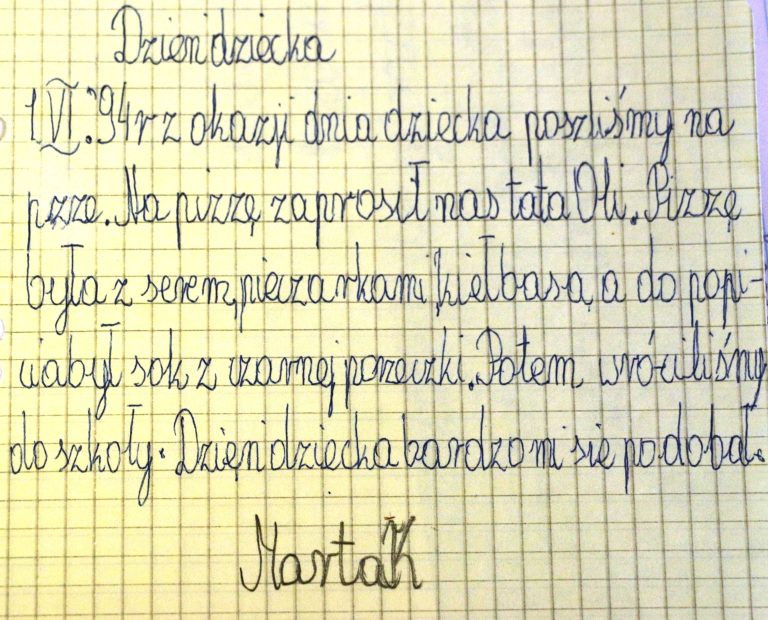 Dzień dziecka
1 VI.'94r z okazji dnia dziecka poszliśmy na
pizzę. Na pizzę zaprosił nas tata Oli. Pizzę
była z serem, pieczarkami, kiełbasą, a do popi-
cia był sok z czarnej porzeczki. Potem wróciliśmy
do szkoły. Dzień dziecka bardzo mi się podobał.
Marta K